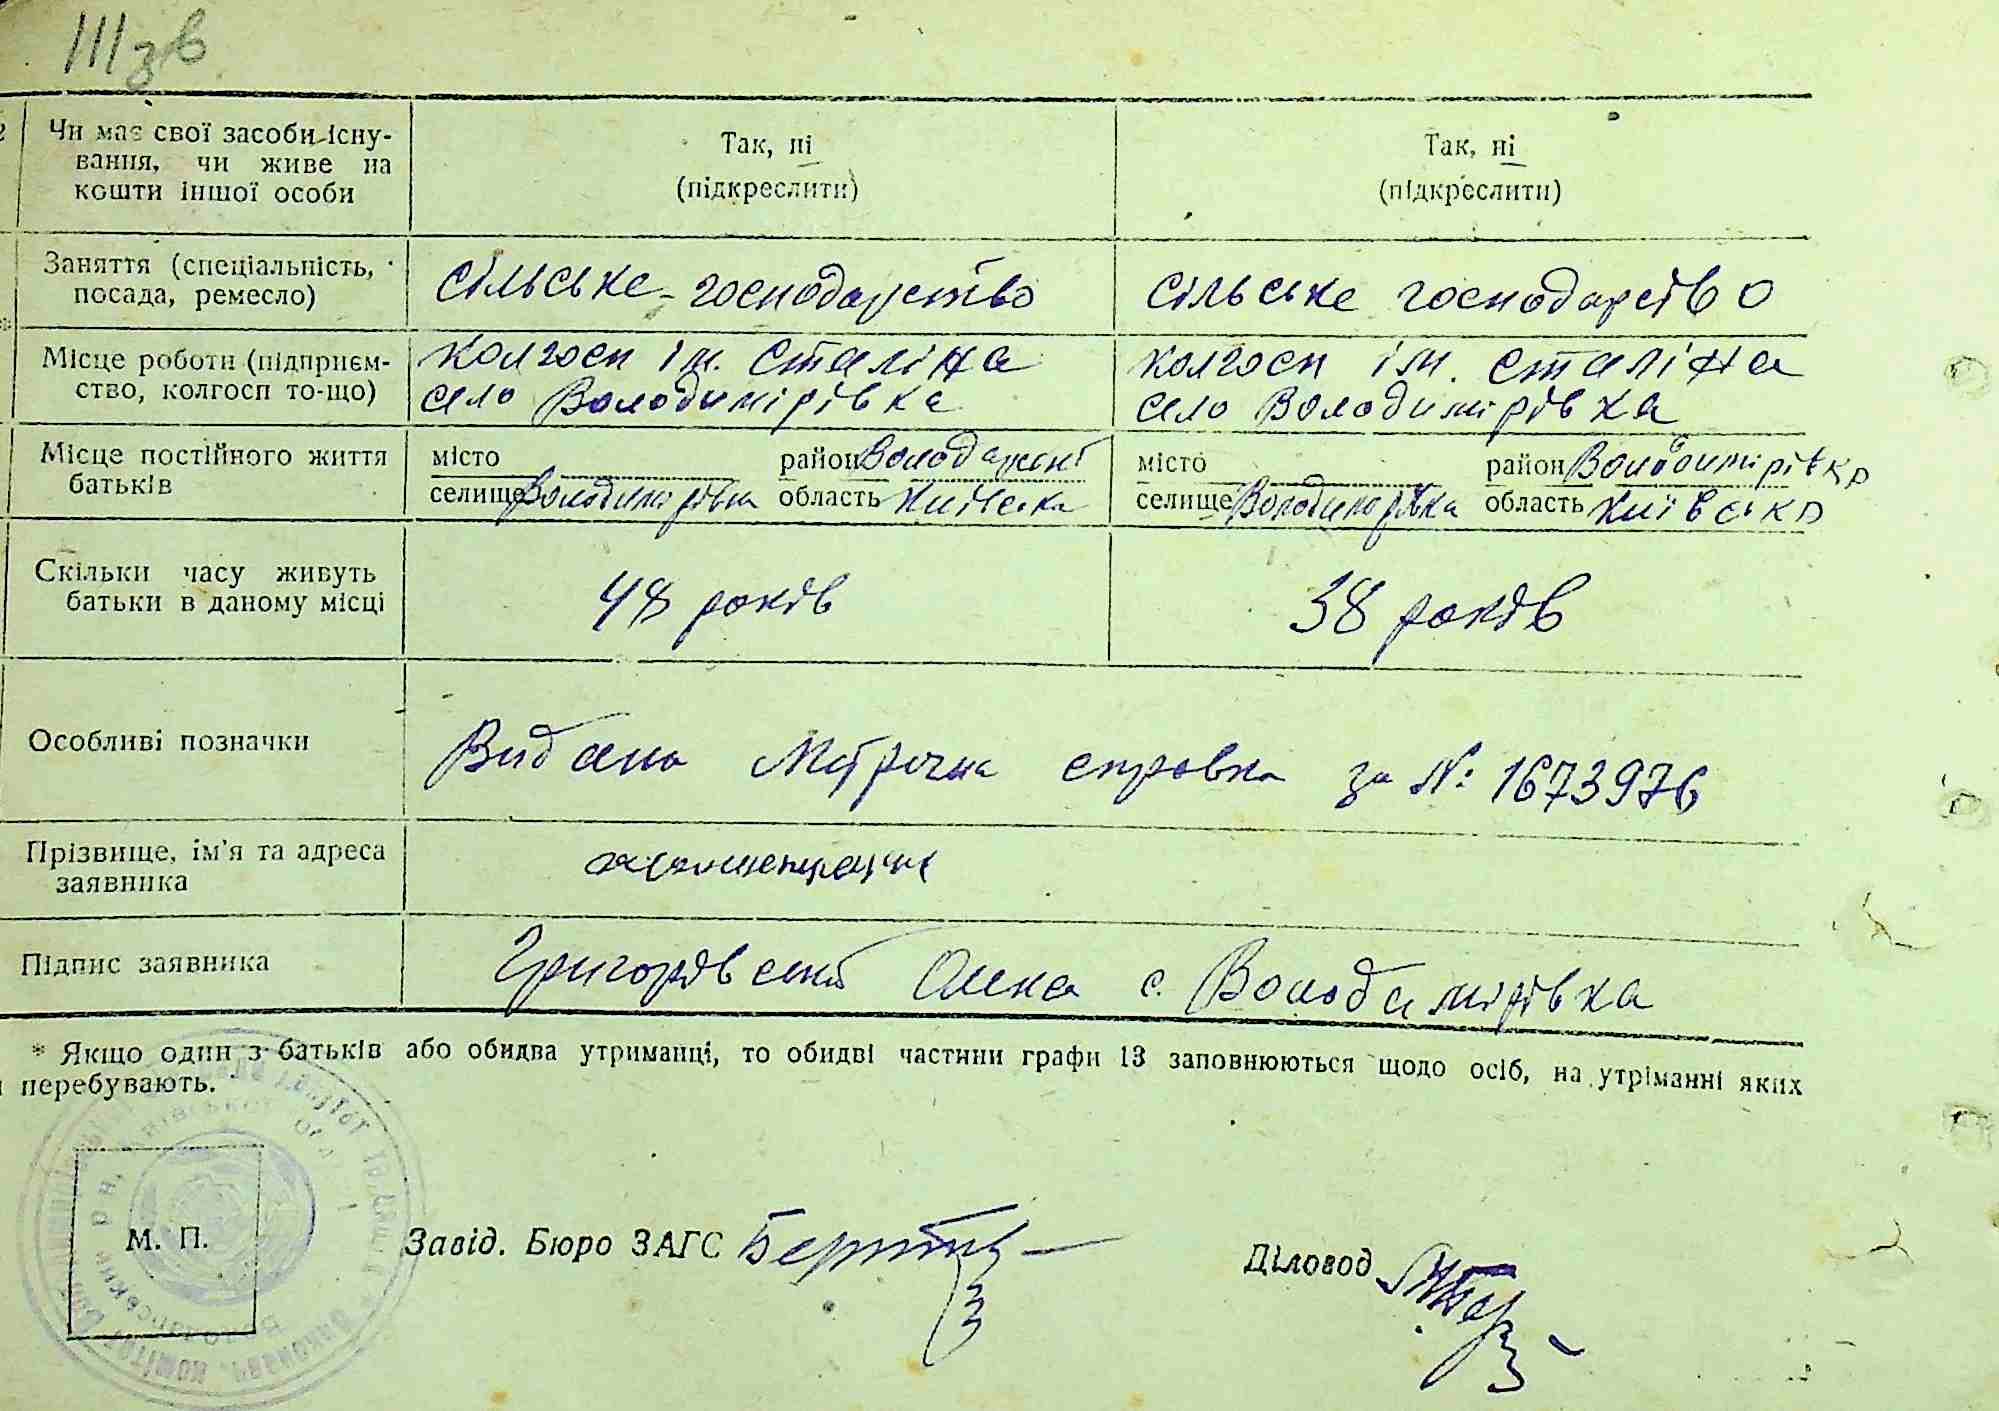 III зв
2 Чи має свої засоби існу-
вання, чи живе на
кошти іншої особи
Так, ні
(підкреслити)
Так, ні
(підкреслити)
Заняття (спеціальність,
посада, ремесло)
сільське-господарство
сільське господарство
*
Місце роботи (підприєм-
ство, колгосп то-що)
колгосп ім. Сталіна
село Володимірівка
колгосп ім. Сталіна
село Володимірівка
Місце постійного життя
батьків
місто район
селище Володимірівка область Київська
місто район Володимірівка
селище Володимірівка область Київська
Скільки часу живуть
батьки в даному місці
48 років
38 років
Особливі позначки
Видана Метрична справка за №: 1673976
Прізвище, ім'я та адреса
заявника
Підпис заявника
Григорівський Олекса с. Володимірівка
* Якщо один з батьків або обидва утриманці, то обидві частини графи 13 заповнюються щодо осіб, на утриманні яких
перебувають.
М. П.
Завід. Бюро ЗАГС
Діловод